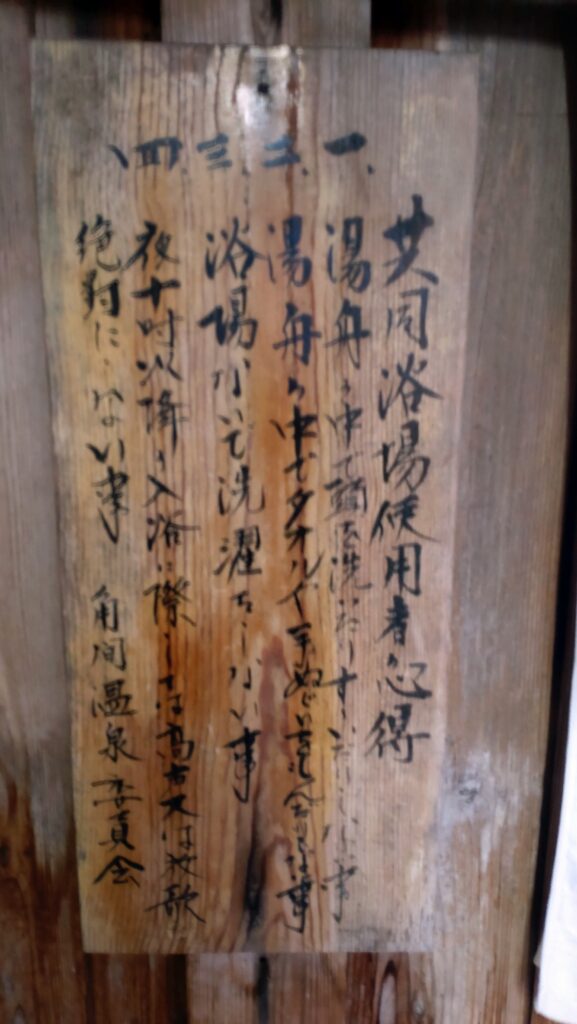 共同浴場使用者心得
一、湯舟の中で頭を洗いたりすすいだりしない事
二、湯舟の中でタオルや手ぬぐいを使わない事
三、浴場ないで洗濯をしない事
四、夜十時以降の入浴に際しては高声又は放歌
絶対にしない事 角間温泉委員会